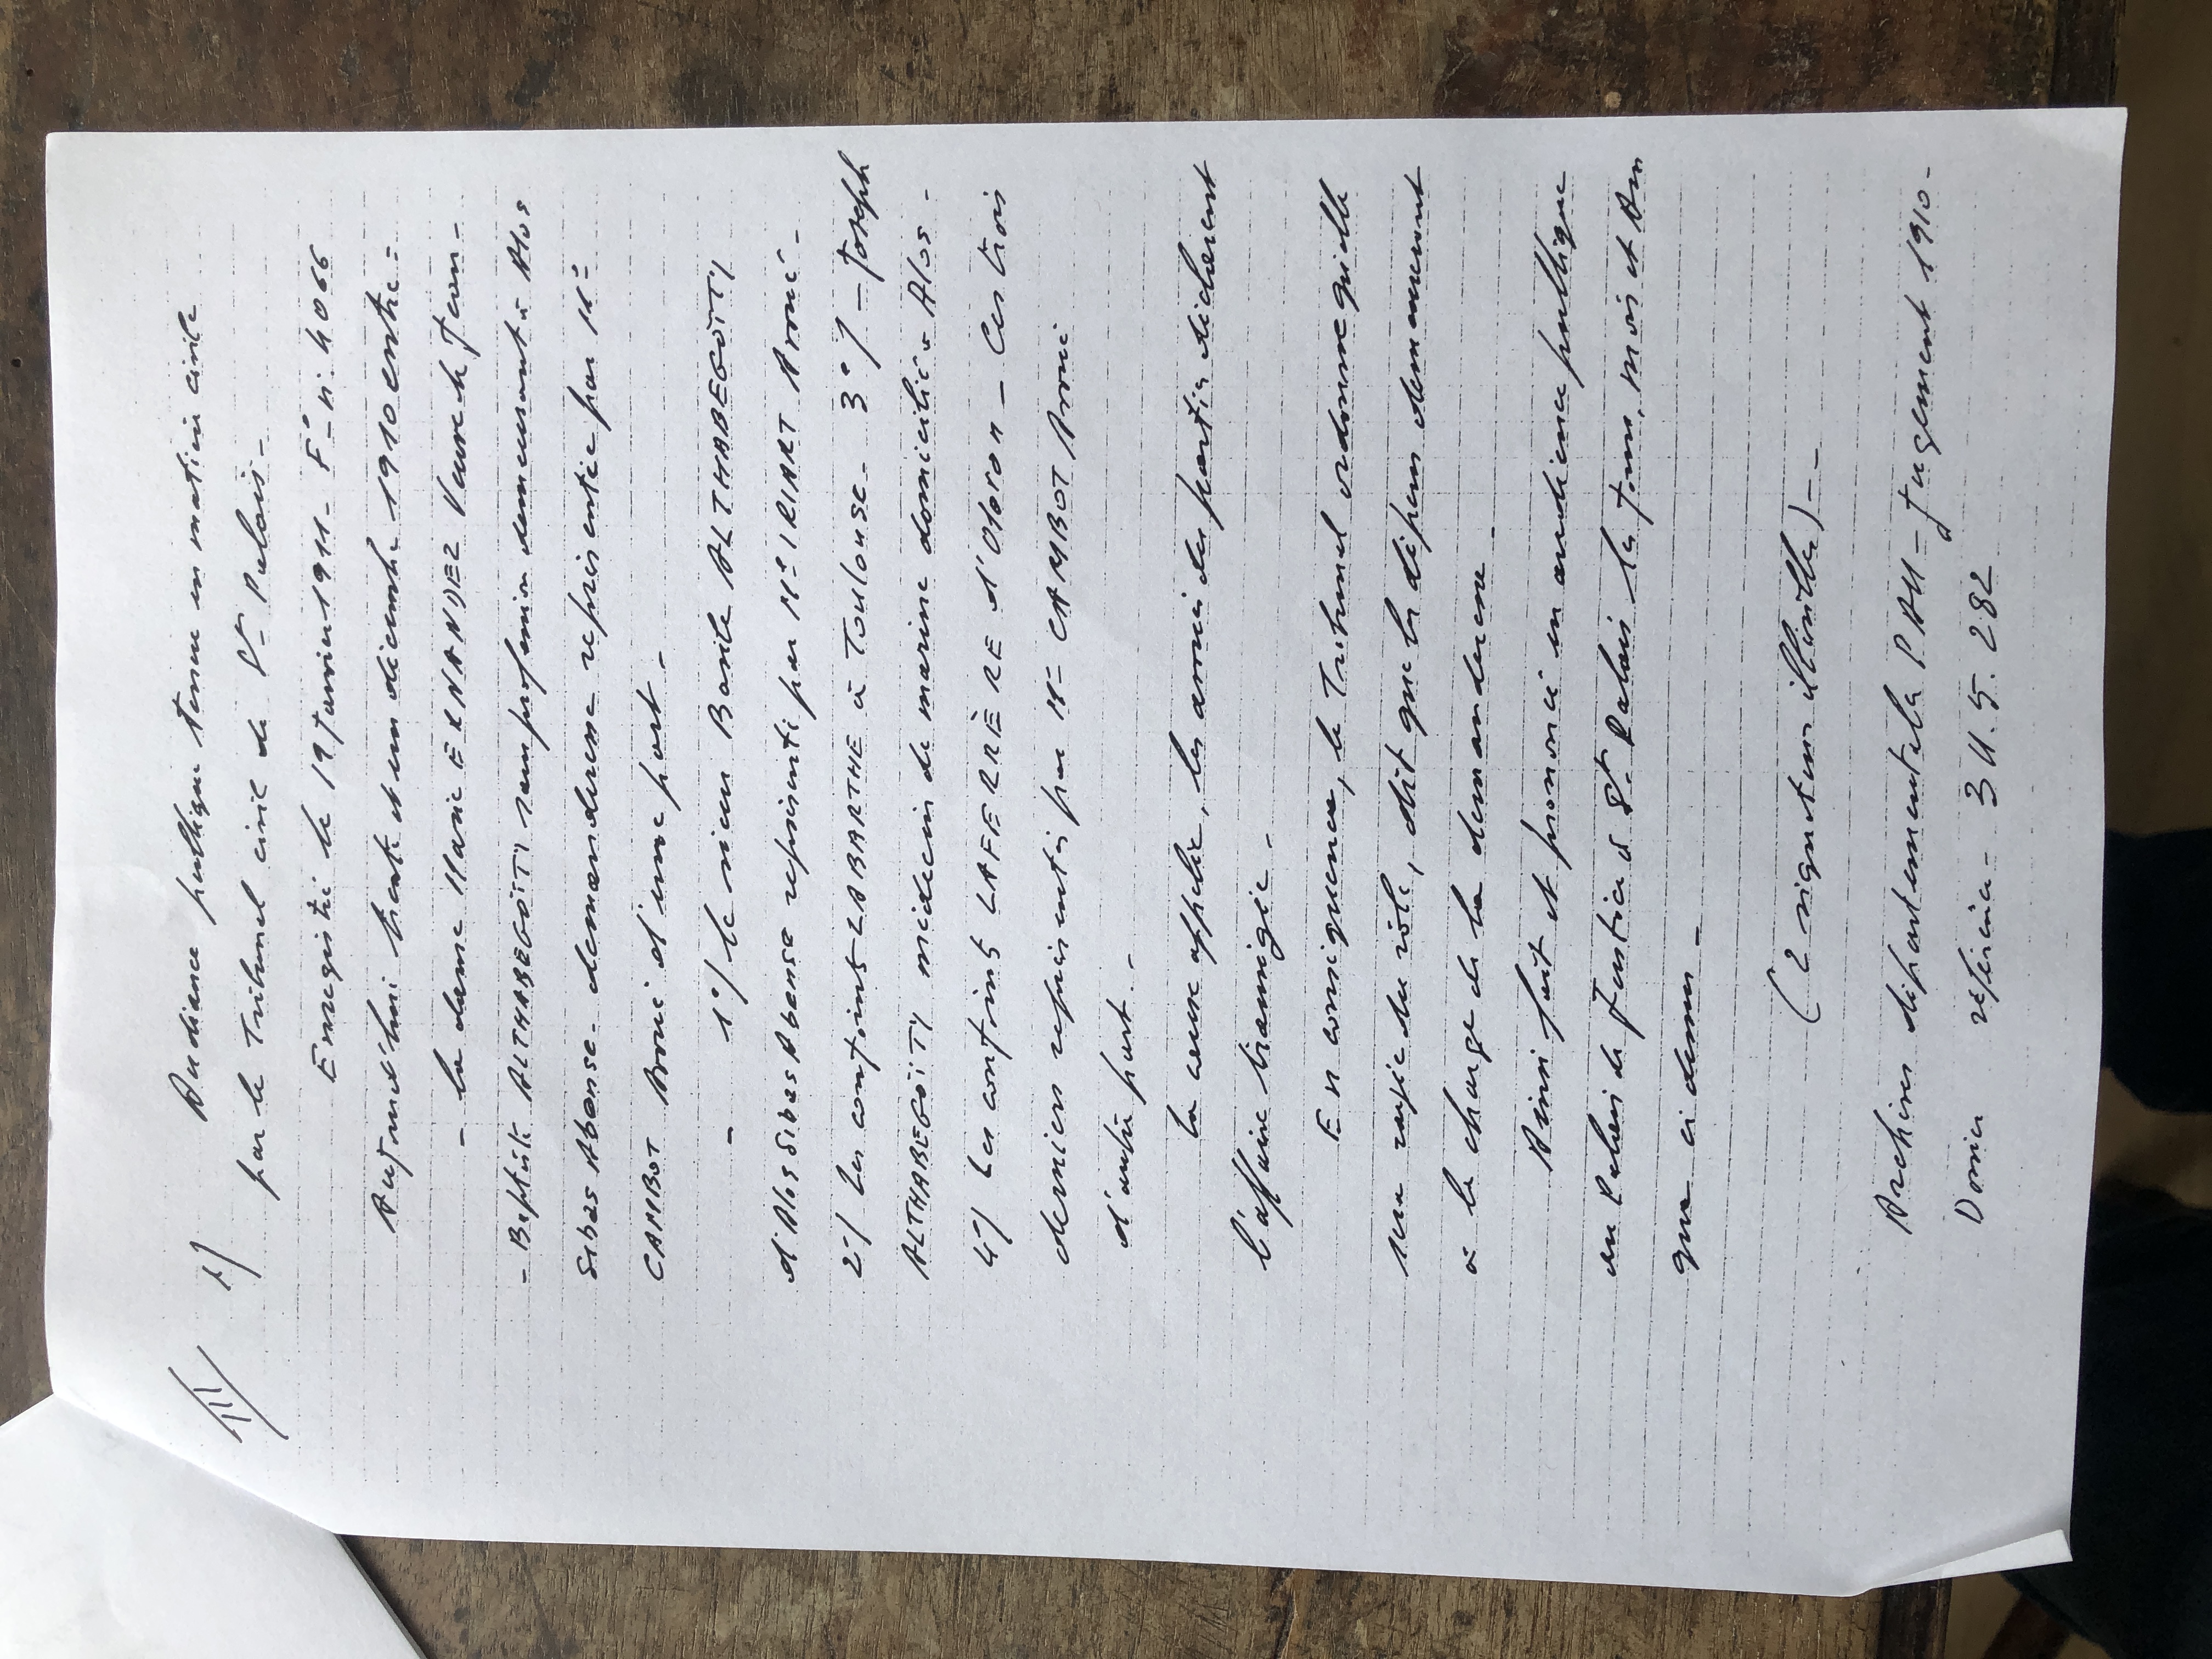 III/ 1/ Audience publique tenue en matière civile
par le Tribunal civil de St Palais -
Enregistré le 19 Janvier 1911 - F° n: 4066
Aujourd'hui trente et un décembre 1910 entre =
- la dame Marie ERNANDEZ Veuve de Jean -
- Baptiste ALTHABEGOÏTY sans profession demeurant à Alos
Sibas Abense - demanderesse représentée par Me
CAMBOT Avoué d'une part -
- 1°/ le sieur Basile ALTHABEGOÏTY
d'Alos Sibas Abense représenté par Me IRIART Avoué -
2°/ Les conjoints LABARTHE à TOULOUSE - 3°/ - Joseph
ALTHABEGOÏTY médecin de marine domicilié à Alos -
4°/ Les conjoints LAFERRÈRE d'Oloron - Ces trois
derniers représentés par Me CAMBOT Avoué
d'autre part -
La cause appelée, les avoués des parties déclarent
l'affaire transigée -
En conséquence, le Tribunal ordonne qu'elle
sera rayée du rôle, dit que les dépens demeureront
à la charge de la demanderesse -
Ainsi fait et prononcé en audience publique
au Palais de Justice à St Palais les Jour, mois et An
que ci dessus -
(2 signatures illisibles) --
Archives départementales PAU - Jugement 1910 -
Dossier référence - 3 U. 5. 282